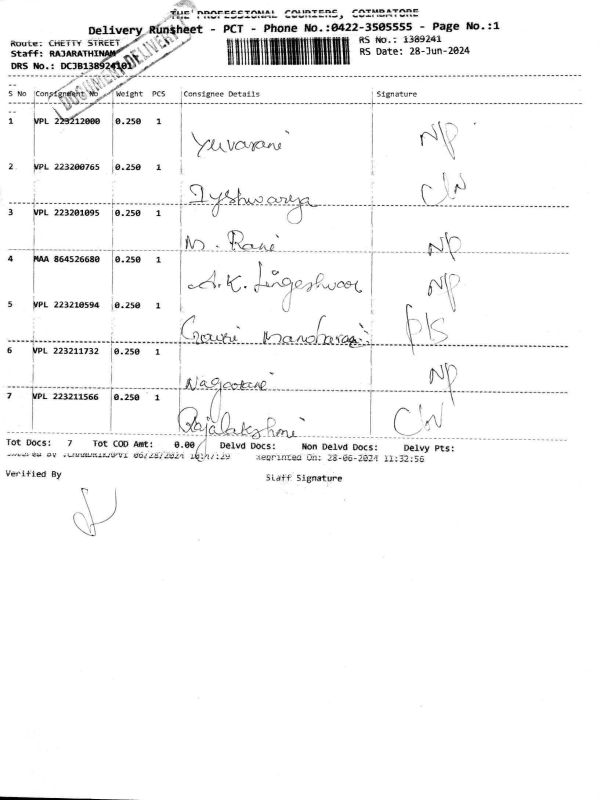 THE PROFESSIONAL COURIERS, COIMBATORE
Delivery Runsheet - PCT - Phone No.:0422-3505555 - Page No.:1
Route: CHETTY STREET
RS No.: 1389241
Staff: RAJARATHINAM
RS Date: 28-Jun-2024
DRS No.: DCJB138924101
DOCUMENT DELIVERY
S No Consignment No Weight PCS Consignee Details Signature
1 VPL 223212000 0.250 1 Yuvarani NP
2 VPL 223200765 0.250 1 Iyshwarya
3 VPL 223201095 0.250 1 M. Rani NP
4 MAA 864526680 0.250 1 A.K. Lingeshwar NP
5 VPL 223210594 0.250 1 Gowri Manohari
6 VPL 223211732 0.250 1 Nagarani NP
7 VPL 223211566 0.250 1 Rajalakshmi
Tot Docs: 7 Tot COD Amt: 0.00 Delvd Docs: Non Delvd Docs: Delvy Pts:
06/28/2024 10:47:29 Reprinted On: 28-06-2024 11:32:56
Verified By
Staff Signature